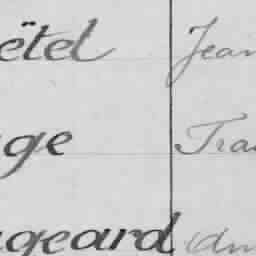 ëtel Jean
ge Fra
geard An